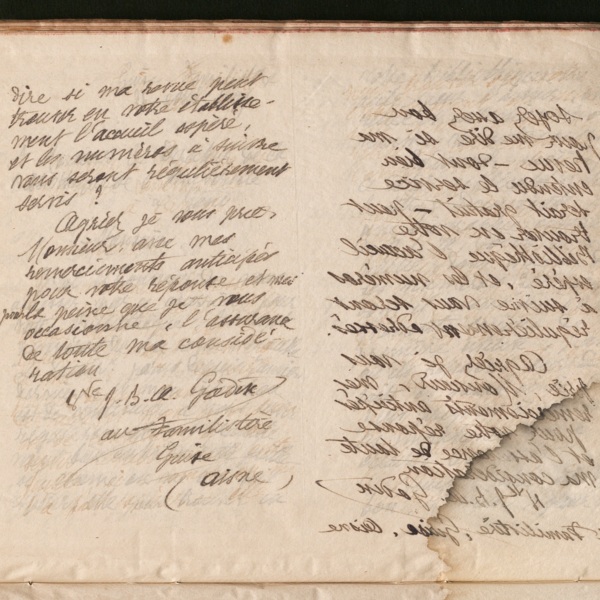 dire si ma revue peut
trouver en votre établisse-
ment l'accueil espéré,
et les numéros à suivre
vous seront régulièrement
servis ?
Agréez je vous prie,
Monsieur avec mes
remerciements anticipés
pour votre réponse et
pour la peine que je vous
occasionne, l'assurance
de toute ma considé-
ration
Vve J. B. A. Godin
au Familistère
Guise
(Aisne)
soyez assez bon
pour me dire si ma
revue – dont bien
entendu le service
serait gratuit – peut
trouver en votre
Bibliothèque l'accueil
espéré, et les numéros
à suivre vous seront
régulièrement adressés.
Agréez je vous
prie, Monsieur,
remerciements anticipés
votre réponse
de toute
ma considération
Godin
Familistère, Guise, Aisne